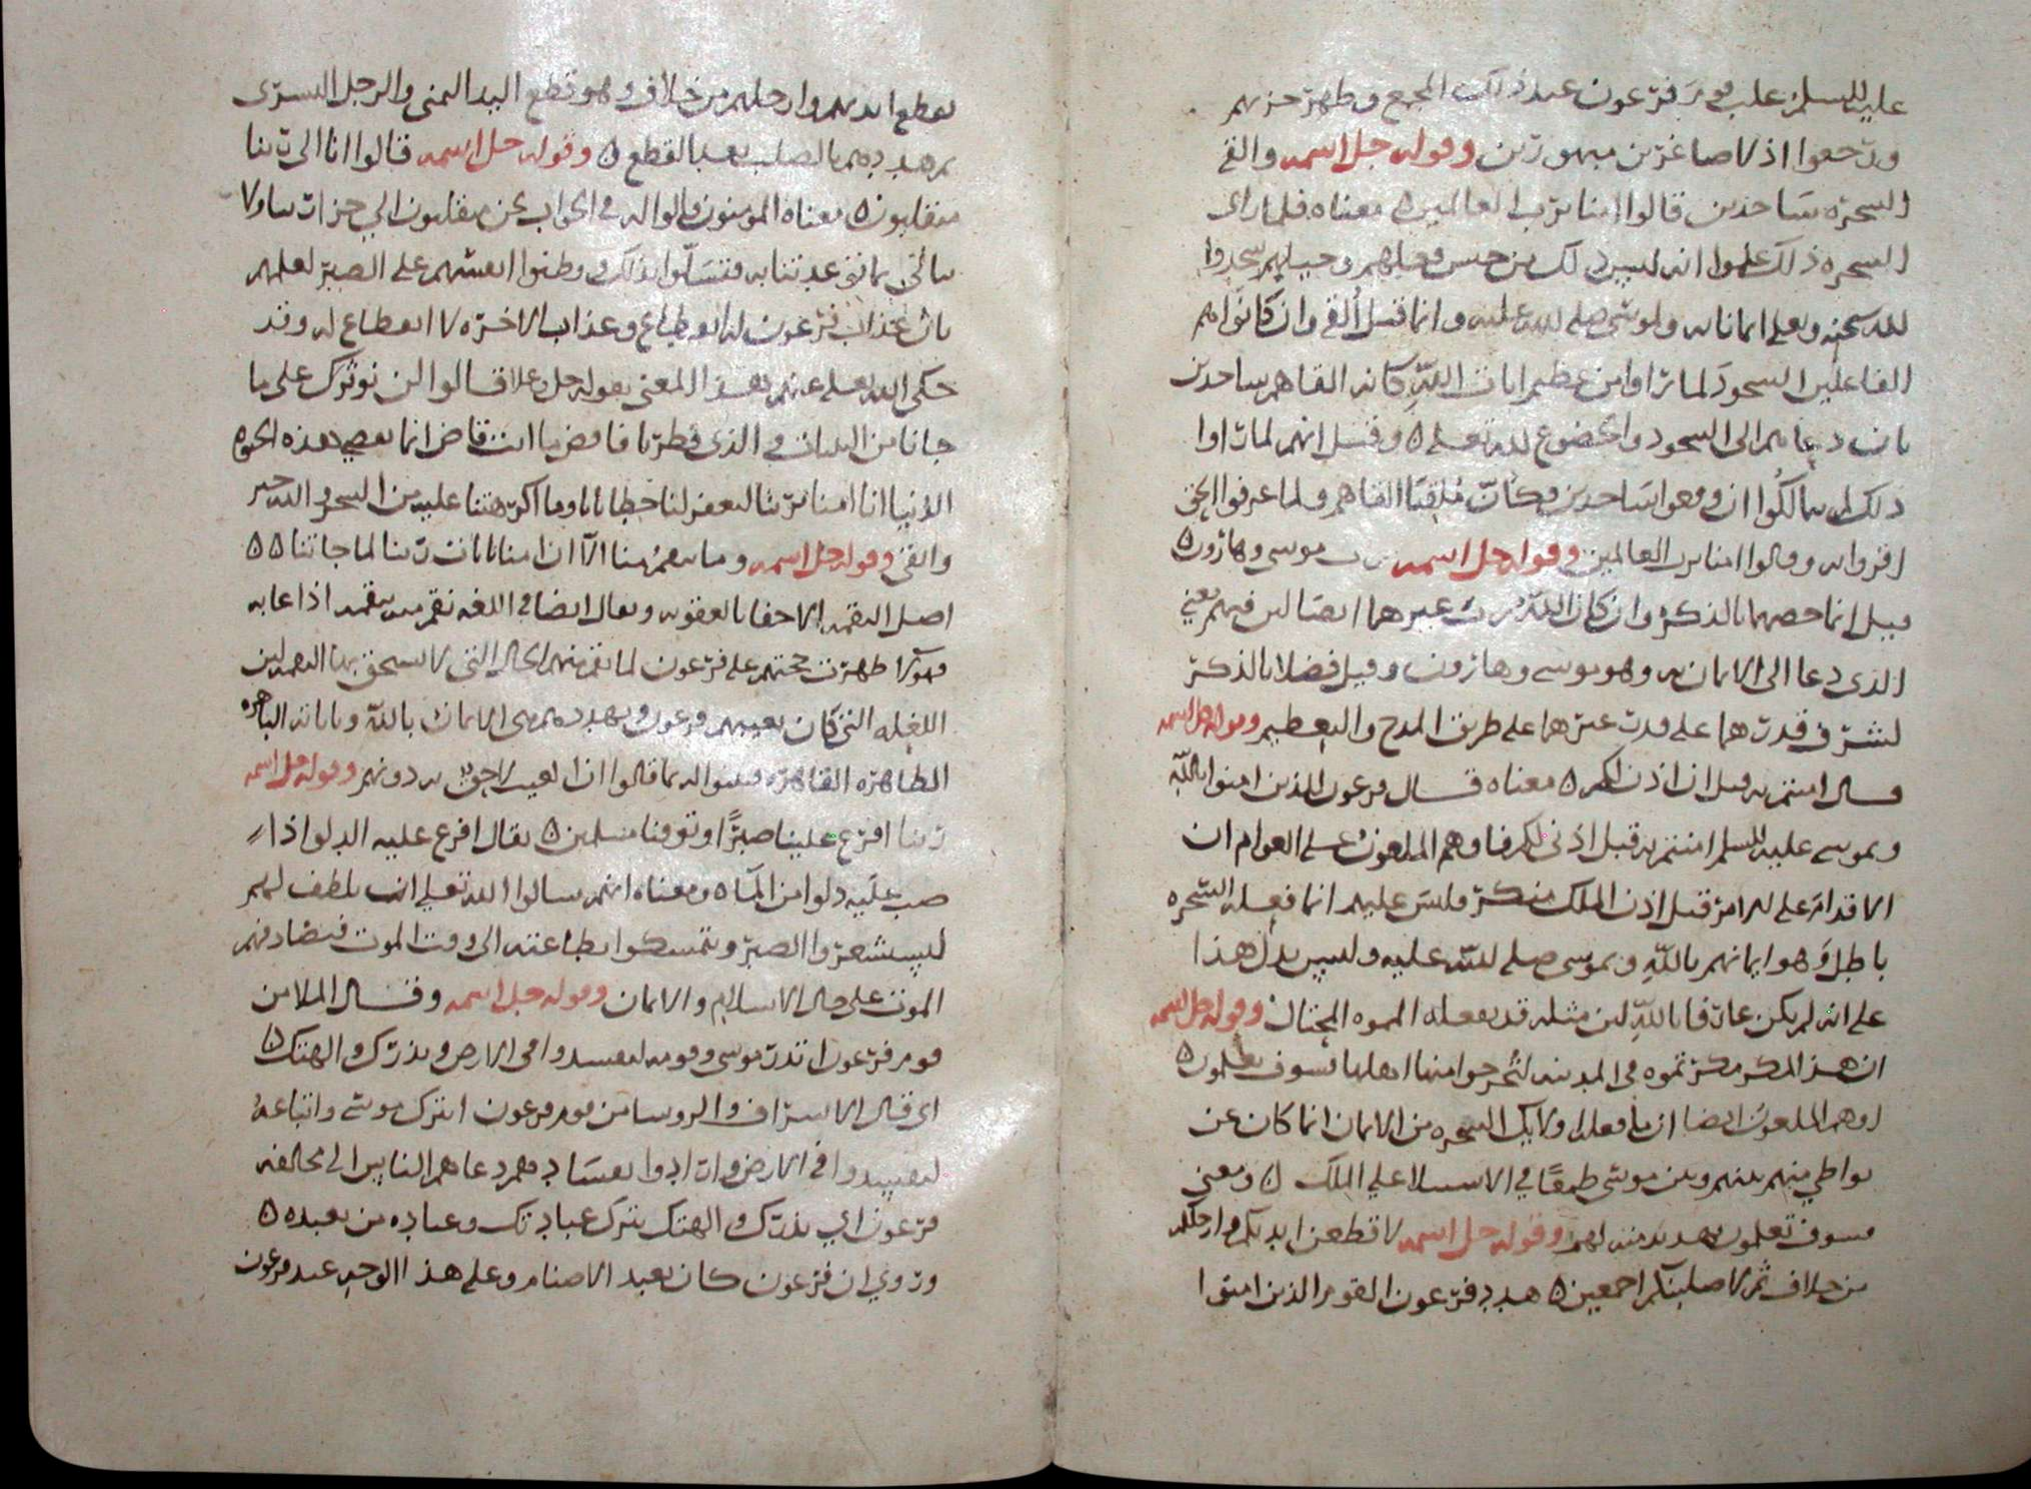 عليه السلم علي قوم فرعون عند ذلك المجمع وظهر حزبهم
ورجعوا اذلا صاغرين مبهورين وقوله جل اسمه والقي
السحره ساجدين قالوا امنا برب العالمين ٥ معناه فلما راي
السحره ذلك علموا انه ليس ذلك من جنس فعلهم وحيلهم سجدوا
لله سبحنه وتعلي ايمانا به ولموسي صلي الله عليه وانما قيل القي وان كانوا هم
الفاعلين السجود لما راوا من عظيم ايات الله كانه القاهم ساجدين
بان دعاهم الي السجود والخضوع لله تعلي ٥ وقيل انهم لما راوا
ذلك لم يتمالكوا ان وقعوا ساجدين فكان ملقيا القاهم ولما عرفوا الحق
اقروا به وقالوا امنا برب العالمين وقوله جل اسمه رب موسي وهارون ٥
قيل انما خصهما بالذكر وان كان الله رب غيرهما ايضا لان فيهم يعني
الذي دعا الي الايمان به وهو موسي وهارون وقيل فضلا بالذكر
لشرف قدرهما علي قدر غيرهما علي طريق المدح والتعظيم وقوله جل اسمه
قال امنتم به قبل ان اذن لكم ٥ معناه قال فرعون للذين امنوا بالله
وبموسي عليه السلم امنتم به قبل اذني لكم فاوهم الملعون علي العوام ان
الاقدام علي الامر قبل اذن الملك منكر ولبس عليهم انما فعله السحره
باطل وهو ايمانهم بالله وبموسي صلي الله عليه وليس يدل هذا
علي انه لم يكن عارفا بالله لان مثله قد يفعله المموه المحتال وقوله جل اسمه
ان هذا لمكر مكرتموه في المدينه لتخرجوا منها اهلها فسوف تعلمون ٥
اوهم الملعون ايضا ان ما فعله اولايك السحره من الايمان انما كان عن
تواطي منهم بينهم وبين موسي طمعا في الاستيلا علي الملك ٥ ومعني
فسوف تعلمون تهديد منه لهم وقوله جل اسمه لاقطعن ايديكم وارجلكم
من خلاف ثم لاصلبنكم اجمعين ٥ هدد فرعون القوم الذين امنوا
بقطع ايديهم وارجلهم من خلاف وهو قطع اليد اليمني والرجل اليسري
ثم هددهم بالصلب بعد القطع ٥ وقوله جل اسمه قالوا انا الي ربنا
منقلبون ٥ معناه المومنون قالوا له في الجواب نحن منقلبون الي جزات ربنا ولا
نبالي بما تتوعدتنا به فتسلوا بذلك ووطنوا انفسهم علي الصبر لعلمهم
بان عذاب فرعون له انقطاع وعذاب الاخره لا انقطاع له وقد
حكي الله تعلي عنهم هذا المعني بقوله جل وعلا قالوا لن نوثرك علي ما
جانا من البينات والذي فطرنا فاقض ما انت قاض انما تقضي هذه الحيوه
الدنيا انا امنا بربنا ليغفر لنا خطايانا وما اكرهتنا عليه من السحر والله خير
وابقي وقوله جل اسمه وما تنقم منا الا ان امنا بايات ربنا لما جاتنا ٥٥
اصل النقمه الاخذ بالعقوبه ويقال ايضا في اللغه نقم منه ينقم اذا عابه
فهولا ظهرت حجتهم علي فرعون لما نقم منهم الحال التي لا يستحق بها النقم لان
الفعله التي كان يعيبهم فرعون ويهددهم هي الايمان بالله وباياته الباهره
الظاهره القاهره فبينوا له بما قالوا ان العيب لاحق به دونهم وقوله جل اسمه
ربنا افرغ علينا صبرا وتوفنا مسلمين ٥ يقال افرغ عليه الدلو اذا
صب عليه دلوا من الماء ومعناه انهم سالوا الله تعلي ان يلطف لهم
ليستشعروا الصبر ويتمسكوا بطاعته الي وقت الموت فيصادفهم
الموت علي حال الاسلام والايمان وقوله جل اسمه وقال الملا من
قوم فرعون اتذر موسي وقومه ليفسدوا في الارض ويذرك والهتك ٥
اي قال الاشراف والروسا من قوم فرعون اتترك موسي واتباعه
ليفسدوا في الارض وارادوا بفسادهم دعاهم الناس الي مخالفه
فرعون اي يذرك والهتك يترك عبادتك وعباده من تعبده ٥
وروي ان فرعون كان يعبد الاصنام وعلي هذا الوجه عبد فرعون